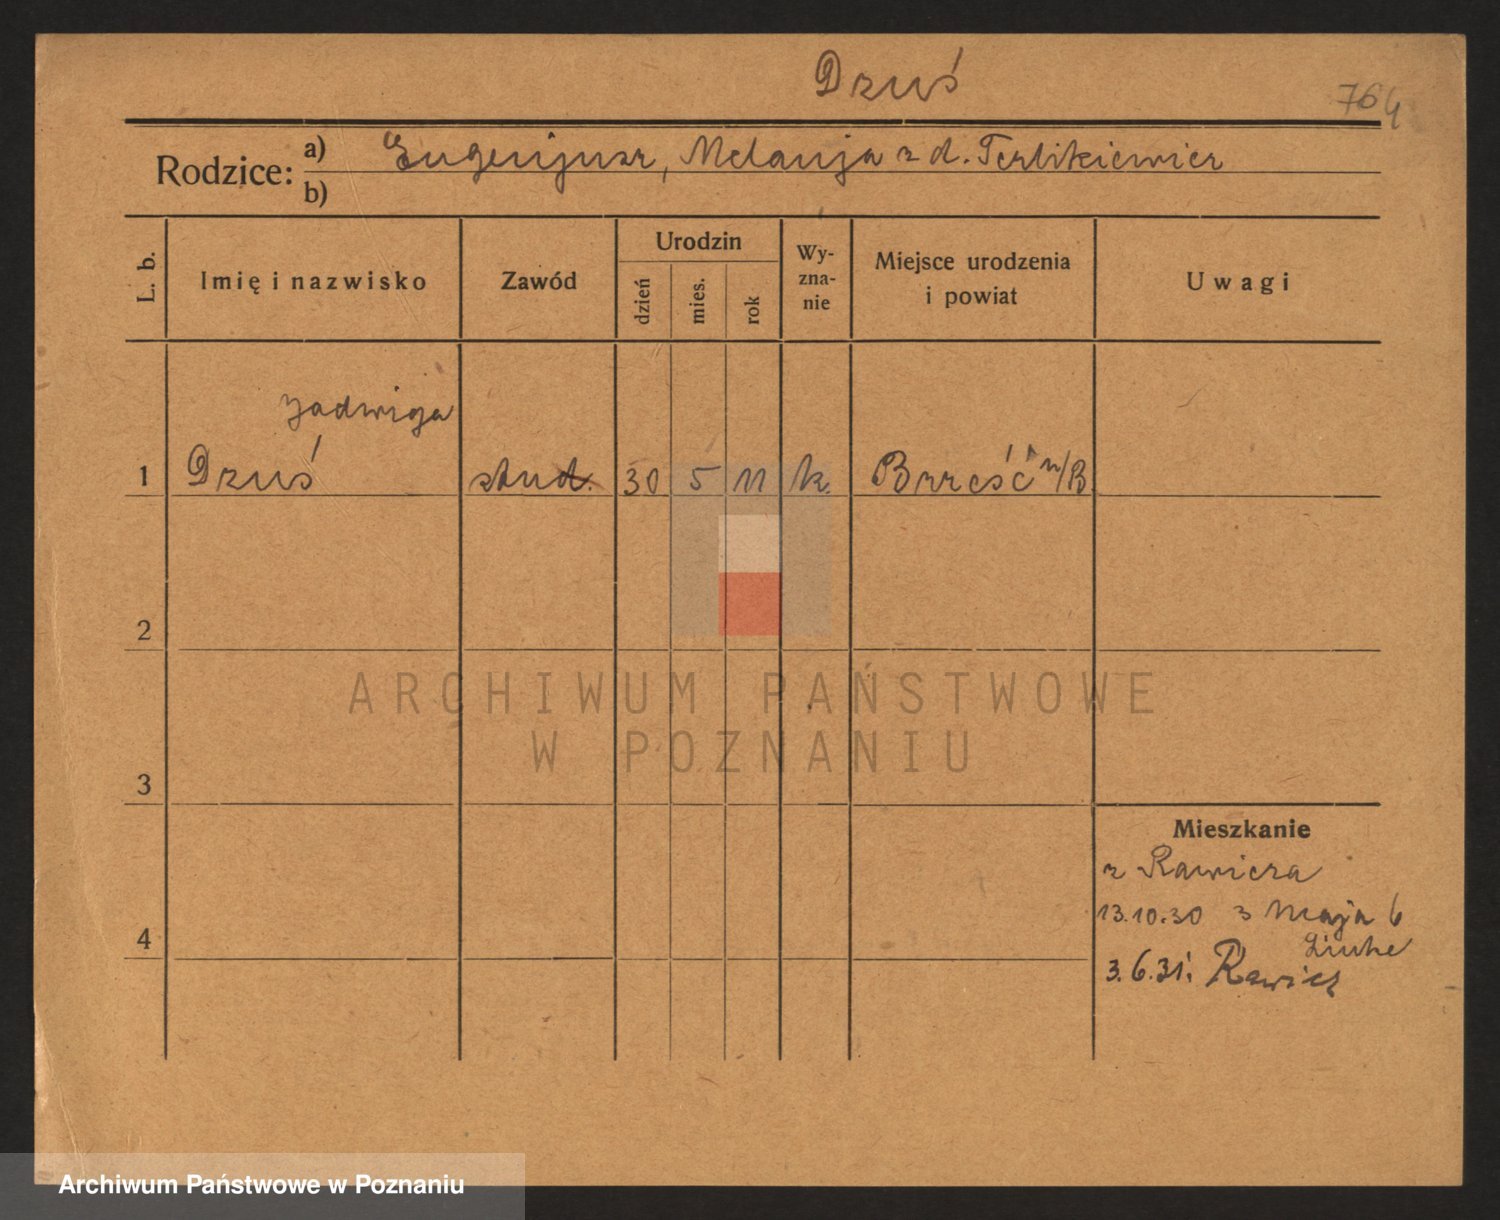 Dzuś
764
Rodzice: a) Eugenjusz, Melanja z d. Terlikiewicz
b)
L. b.
Imię i nazwisko
Zawód
Urodzin
dzień
mies.
rok
Wy-
zna-
nie
Miejsce urodzenia
i powiat
Uwagi
Jadwiga
1 Dzuś stud. 30 5 11 k. Brześć n/B
2
ARCHIWUM PAŃSTWOWE
W POZNANIU
3
Mieszkanie
z Rawicza
13.10.30 3 Maja 6
4
3.6.31. Rawicz
Archiwum Państwowe w Poznaniu